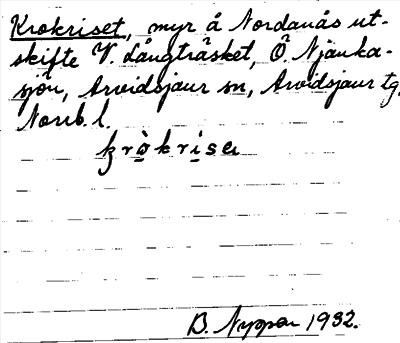 Krokriset, myr å Nordanås ut-
skifte V. Långträsket, Ö. Njauka-
sjön, Arvidsjaur sn, Arvidsjaur tg.
Norrb. l.
kròkrise
1932.